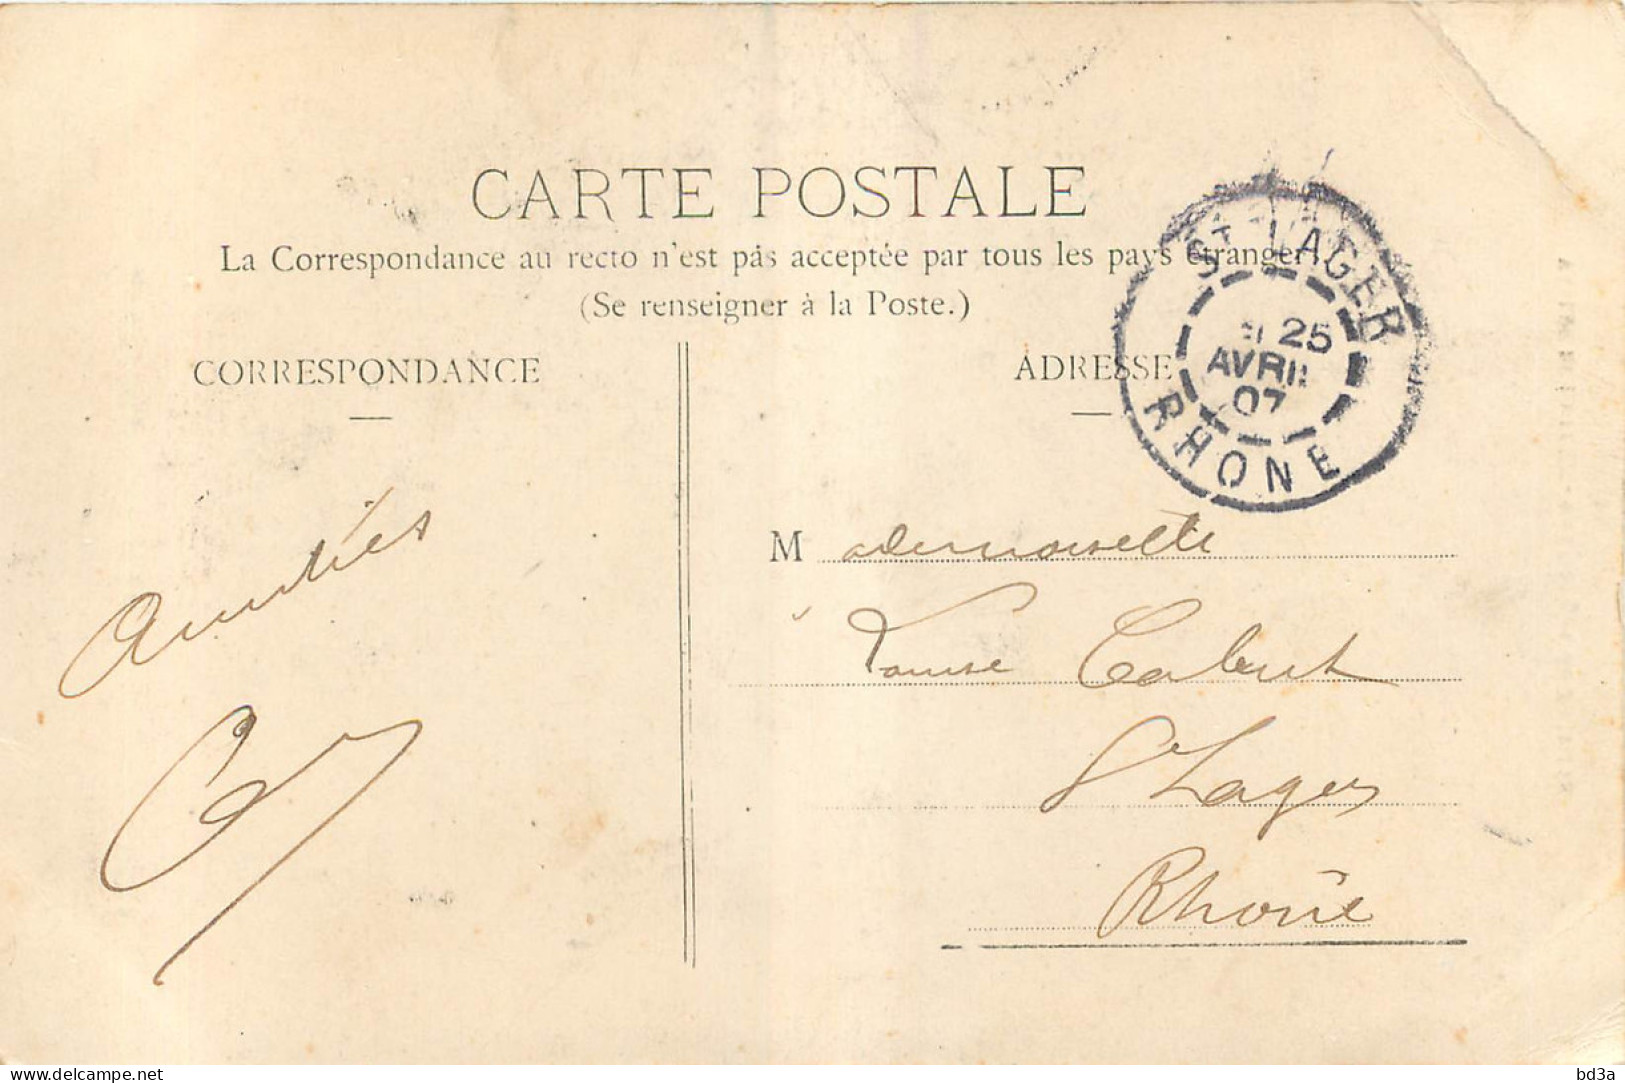 CARTE POSTALE
La Correspondance au recto n'est pas acceptée par tous les pays étrangers
(Se renseigner à la Poste.)
CORRESPONDANCE
ADRESSE
ST LAGER
25
AVRIL
07
RHONE
Amitiés
Mademoiselle
Louise Cabut
St Lager
Rhône
delcampe.net
bd3a